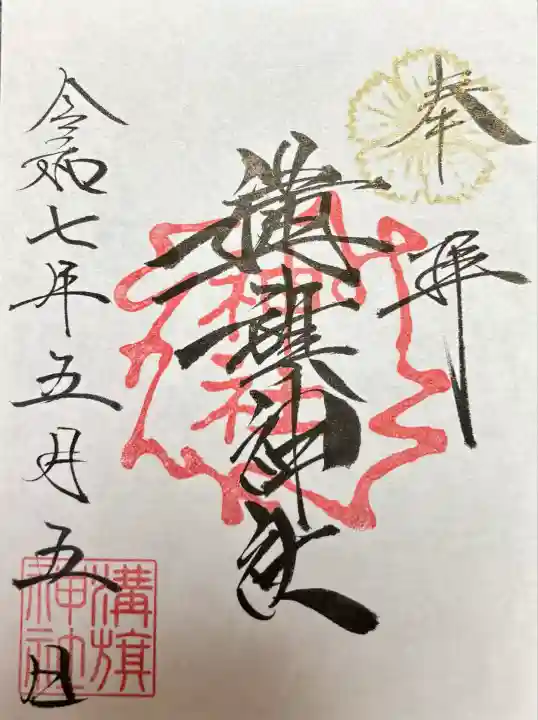 奉拝
溝旗神社
神社
令和七年五月五日
溝旗神社